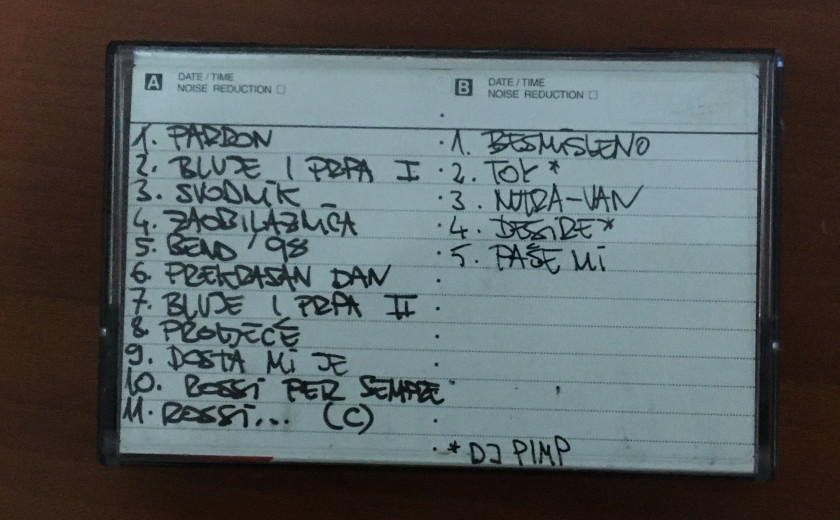 A DATE / TIME
NOISE REDUCTION
1. PARDON
2. BLUJE I PRPA I
3. SVODNIK
4. ZAOBILAZNICA
5. BEND '98
6. PREKRASAN DAN
7. BLUJE I PRPA II
8. PROLJEĆE
9. DOSTA MI JE
10. ROSSI PER SEMPRE
11. ROSSI... (C)
B DATE / TIME
NOISE REDUCTION
1. BESMISLENO
2. TOK *
3. NUTRA-VAN
4. DESIRE *
5. PAŠE MI
* DJ PIMP